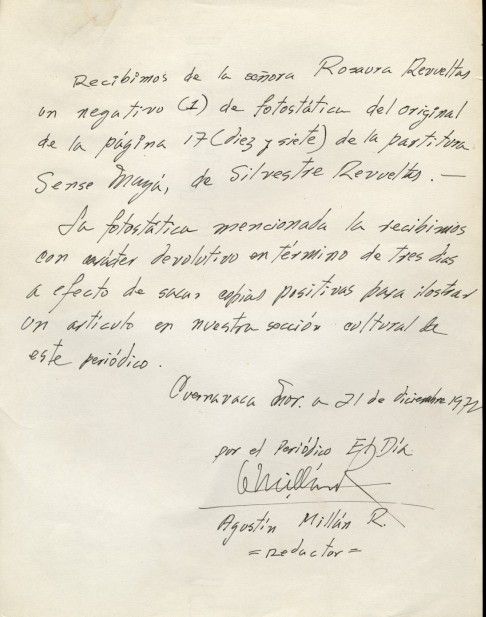 Recibimos de la señora Rosaura Revueltas
un negativo (1) de fotostática del original
de la página 17 (diez y siete) de la partitura
Sense Mayá, de Silvestre Revueltas. —
La fotostática mencionada la recibimos
con carácter devolutivo en término de tres días
a efecto de sacar copias positivas para ilostrar
un artículo en nuestra sección cultural de
este periódico.
Cuernavaca Mor. a 21 de diciembre 197
por el Periódico El Día
Agustín Millán R.
= redactor =